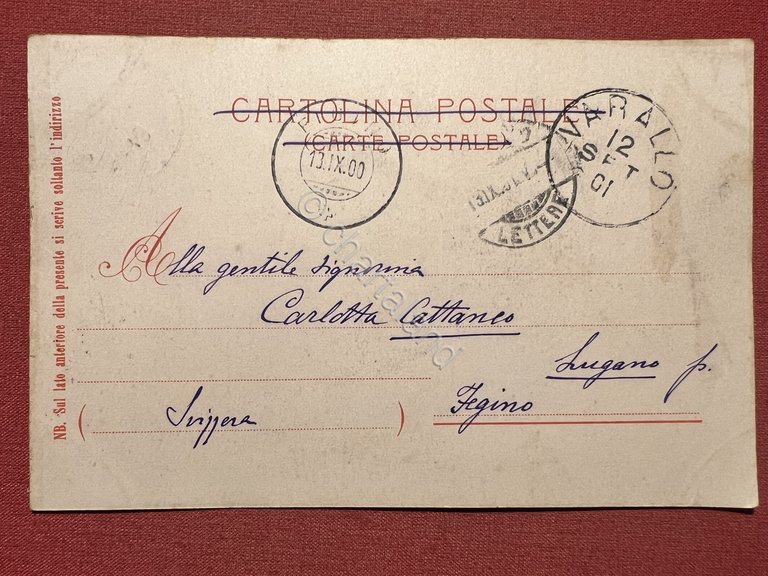 CARTOLINA POSTALE
(CARTE POSTALE)
13.IX.00
LETTERE
VARALLO
12
SET
01
Alla gentile signorina
Carlotta Cattaneo
Lugano p.
Fegino
Svizzera
NB. Sul lato anteriore della presente si scrive soltanto l'indirizzo